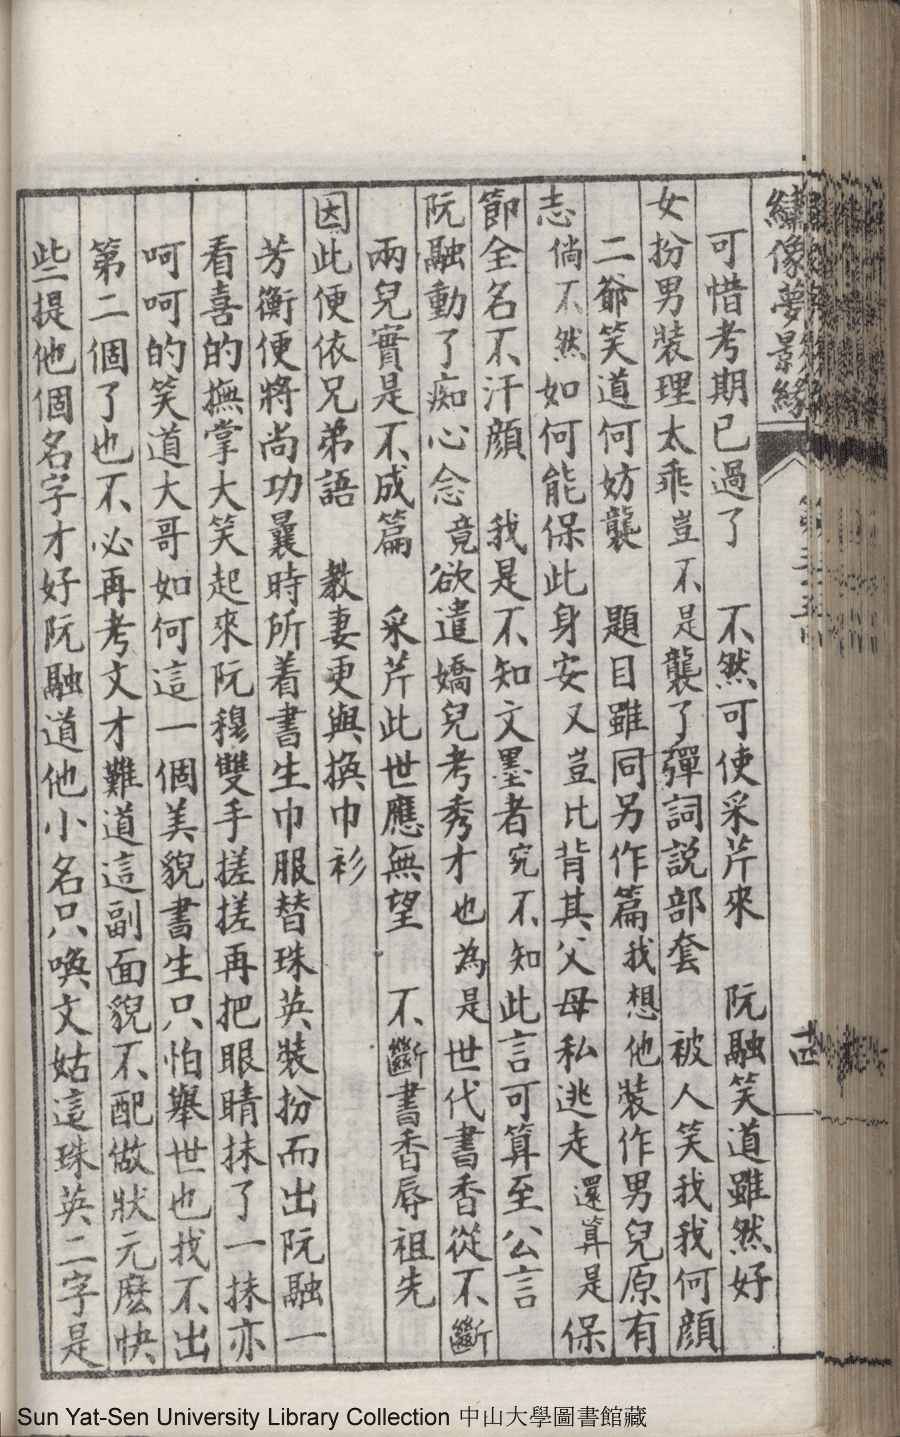 繡像夢景緣
可惜考期已過了　不然可使采芹來　阮融笑道雖然好
女扮男裝理太乖豈不是襲了彈詞説部套　被人笑我我何顔
二爺笑道何妨襲　題目雖同另作篇我想他裝作男兒原有
志倘不然如何能保此身安又豈比背其父母私逃走還算是保
節全名不汗顔　我是不知文墨者究不知此言可算至公言
阮融動了痴心念竟欲遣嬌兒考秀才也為是世代書香從不斷
兩兒實是不成篇　采芹此世應無望　不斷書香辱祖先
因此便依兄弟語　教妻更與換巾衫
芳衡便將尚功曩時所着書生巾服替珠英裝扮而出阮融一
看喜的撫掌大笑起來阮穆雙手搓搓再把眼睛抹了一抹亦
呵呵的笑道大哥如何這一個美貌書生只怕舉世也找不出
第二個了也不必再考文才難道這副面貌不配做狀元麽快
些提他個名字才好阮融道他小名只喚文姑這珠英二字是
Sun Yat-Sen University Library Collection 中山大學圖書館藏